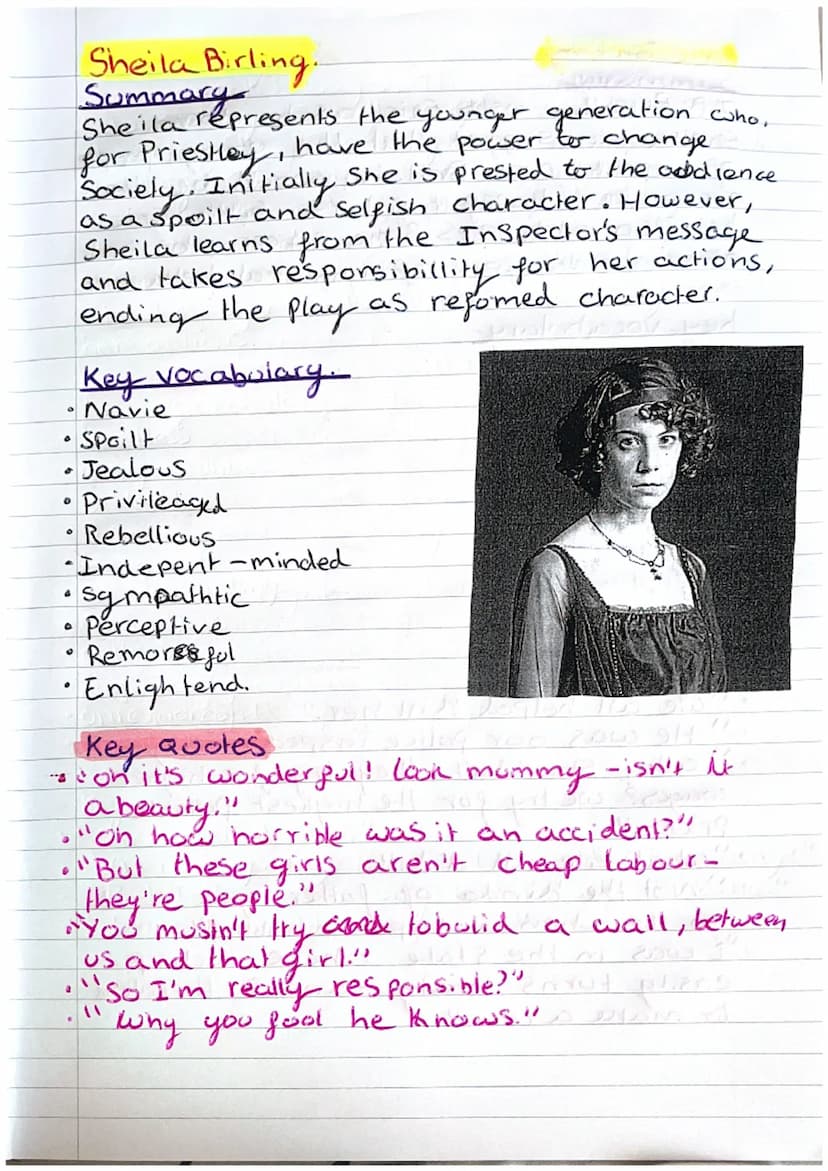 Sheila Birling.
Summary
Sheila represents the younger generation who,
for Priestley, have the power to change
Society. Initially She is prested to the audience
as a spoilt and selfish character. However,
Sheila learns from the Inspector's message
and takes responsibillity for her actions,
ending the play as refomed character.
Key vocabulary.
• Navie
• Spoilt
• Jealous
• Privileaged
• Rebellious
• Indepent-minded
• Sympathtic
• Perceptive
• Remorseful
• Enlightend.
Key quotes
• "oh it's wonderful! Look mummy - isn't it
a beauty."
• "Oh how horrible was it an accident?"
• "But these girls aren't cheap labour -
they're people."
• "You musn't try to bulid a wall, between
us and that girl."
• "So I'm really responsible?"
• "Why you fool he knows."